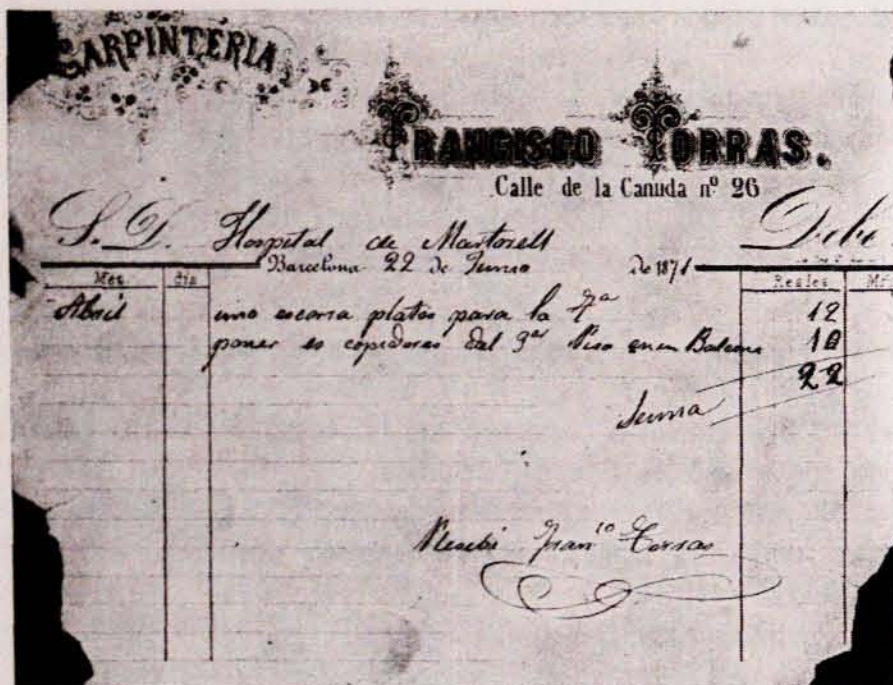 CARPINTERIA
DE
FRANCISCO TORRAS.
Calle de la Canuda nº 26
S. D. Hospital de Martorell Debe
Barcelona 22 de Junio de 1871
Mes. dia Reales
Abril uno escorra platos para la 12
poner es del 3er Piso en un Balcon 10
22
Suma
Recibi Franco Torras